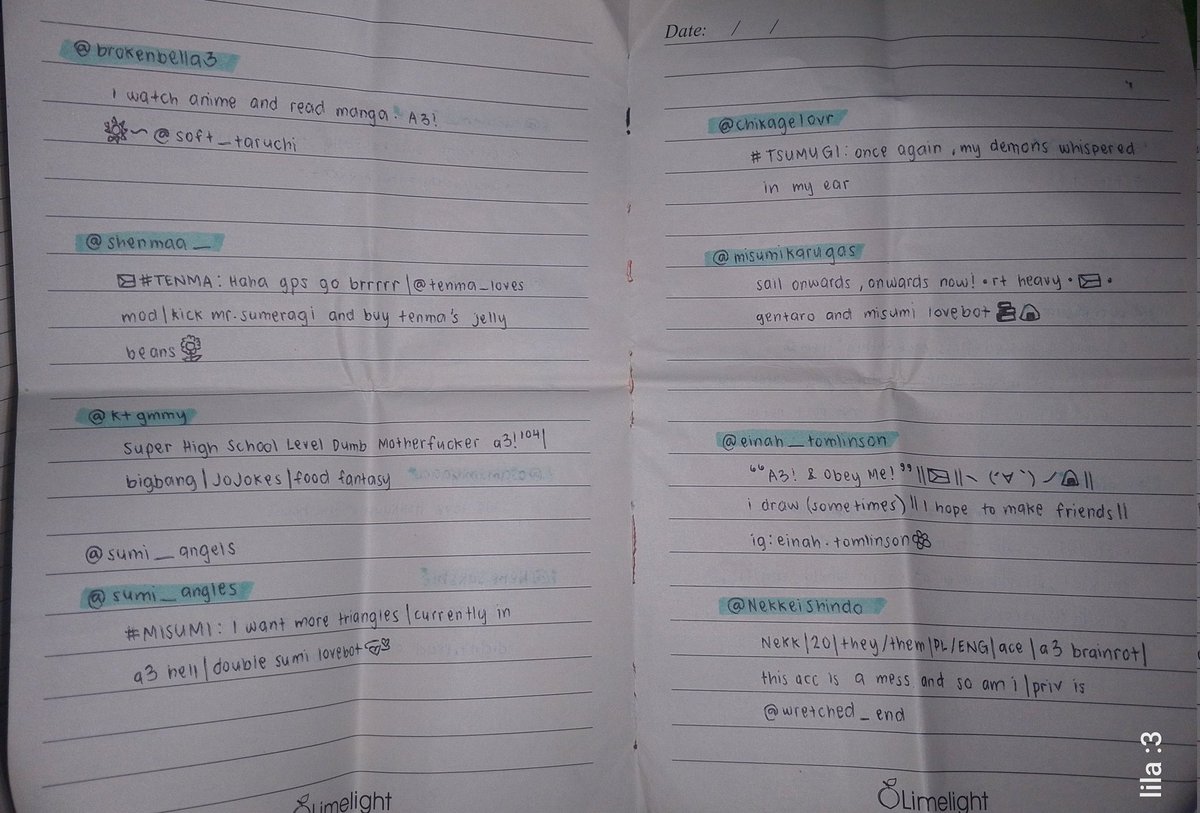 @brokenbella3
I watch anime and read manga. A3!
~ @soft_taruchi
@shenmaa_
#TENMA: Haha gps go brrrrr | @tenma_loves
mod | kick mr. sumeragi and buy tenma's jelly
beans
@ktgmmy
Super High School Level Dumb Motherfucker a3! 104 |
bigbang | JoJokes | food fantasy
@sumi_angels
@sumi_angles
#MISUMI: I want more triangles | currently in
a3 hell | double sumi lovebot
Limelight
Date: / /
@chikagelovr
#TSUMUGI: once again, my demons whispered
in my ear
@misumikarugas
sail onwards, onwards now! • rt heavy • ✉ •
gentaro and misumi lovebot 🍙
@einah_tomlinson
“A3! & Obey Me!” || ✉ || ヽ(´∀`)ノ🍙 ||
i draw (sometimes) || I hope to make friends ||
ig: einah.tomlinson
@NekkeiShindo
Nekk | 20 | they/them | PL/ENG | ace | a3 brainrot |
this acc is a mess and so am i | priv is
@wretched_end
Limelight
lila :3